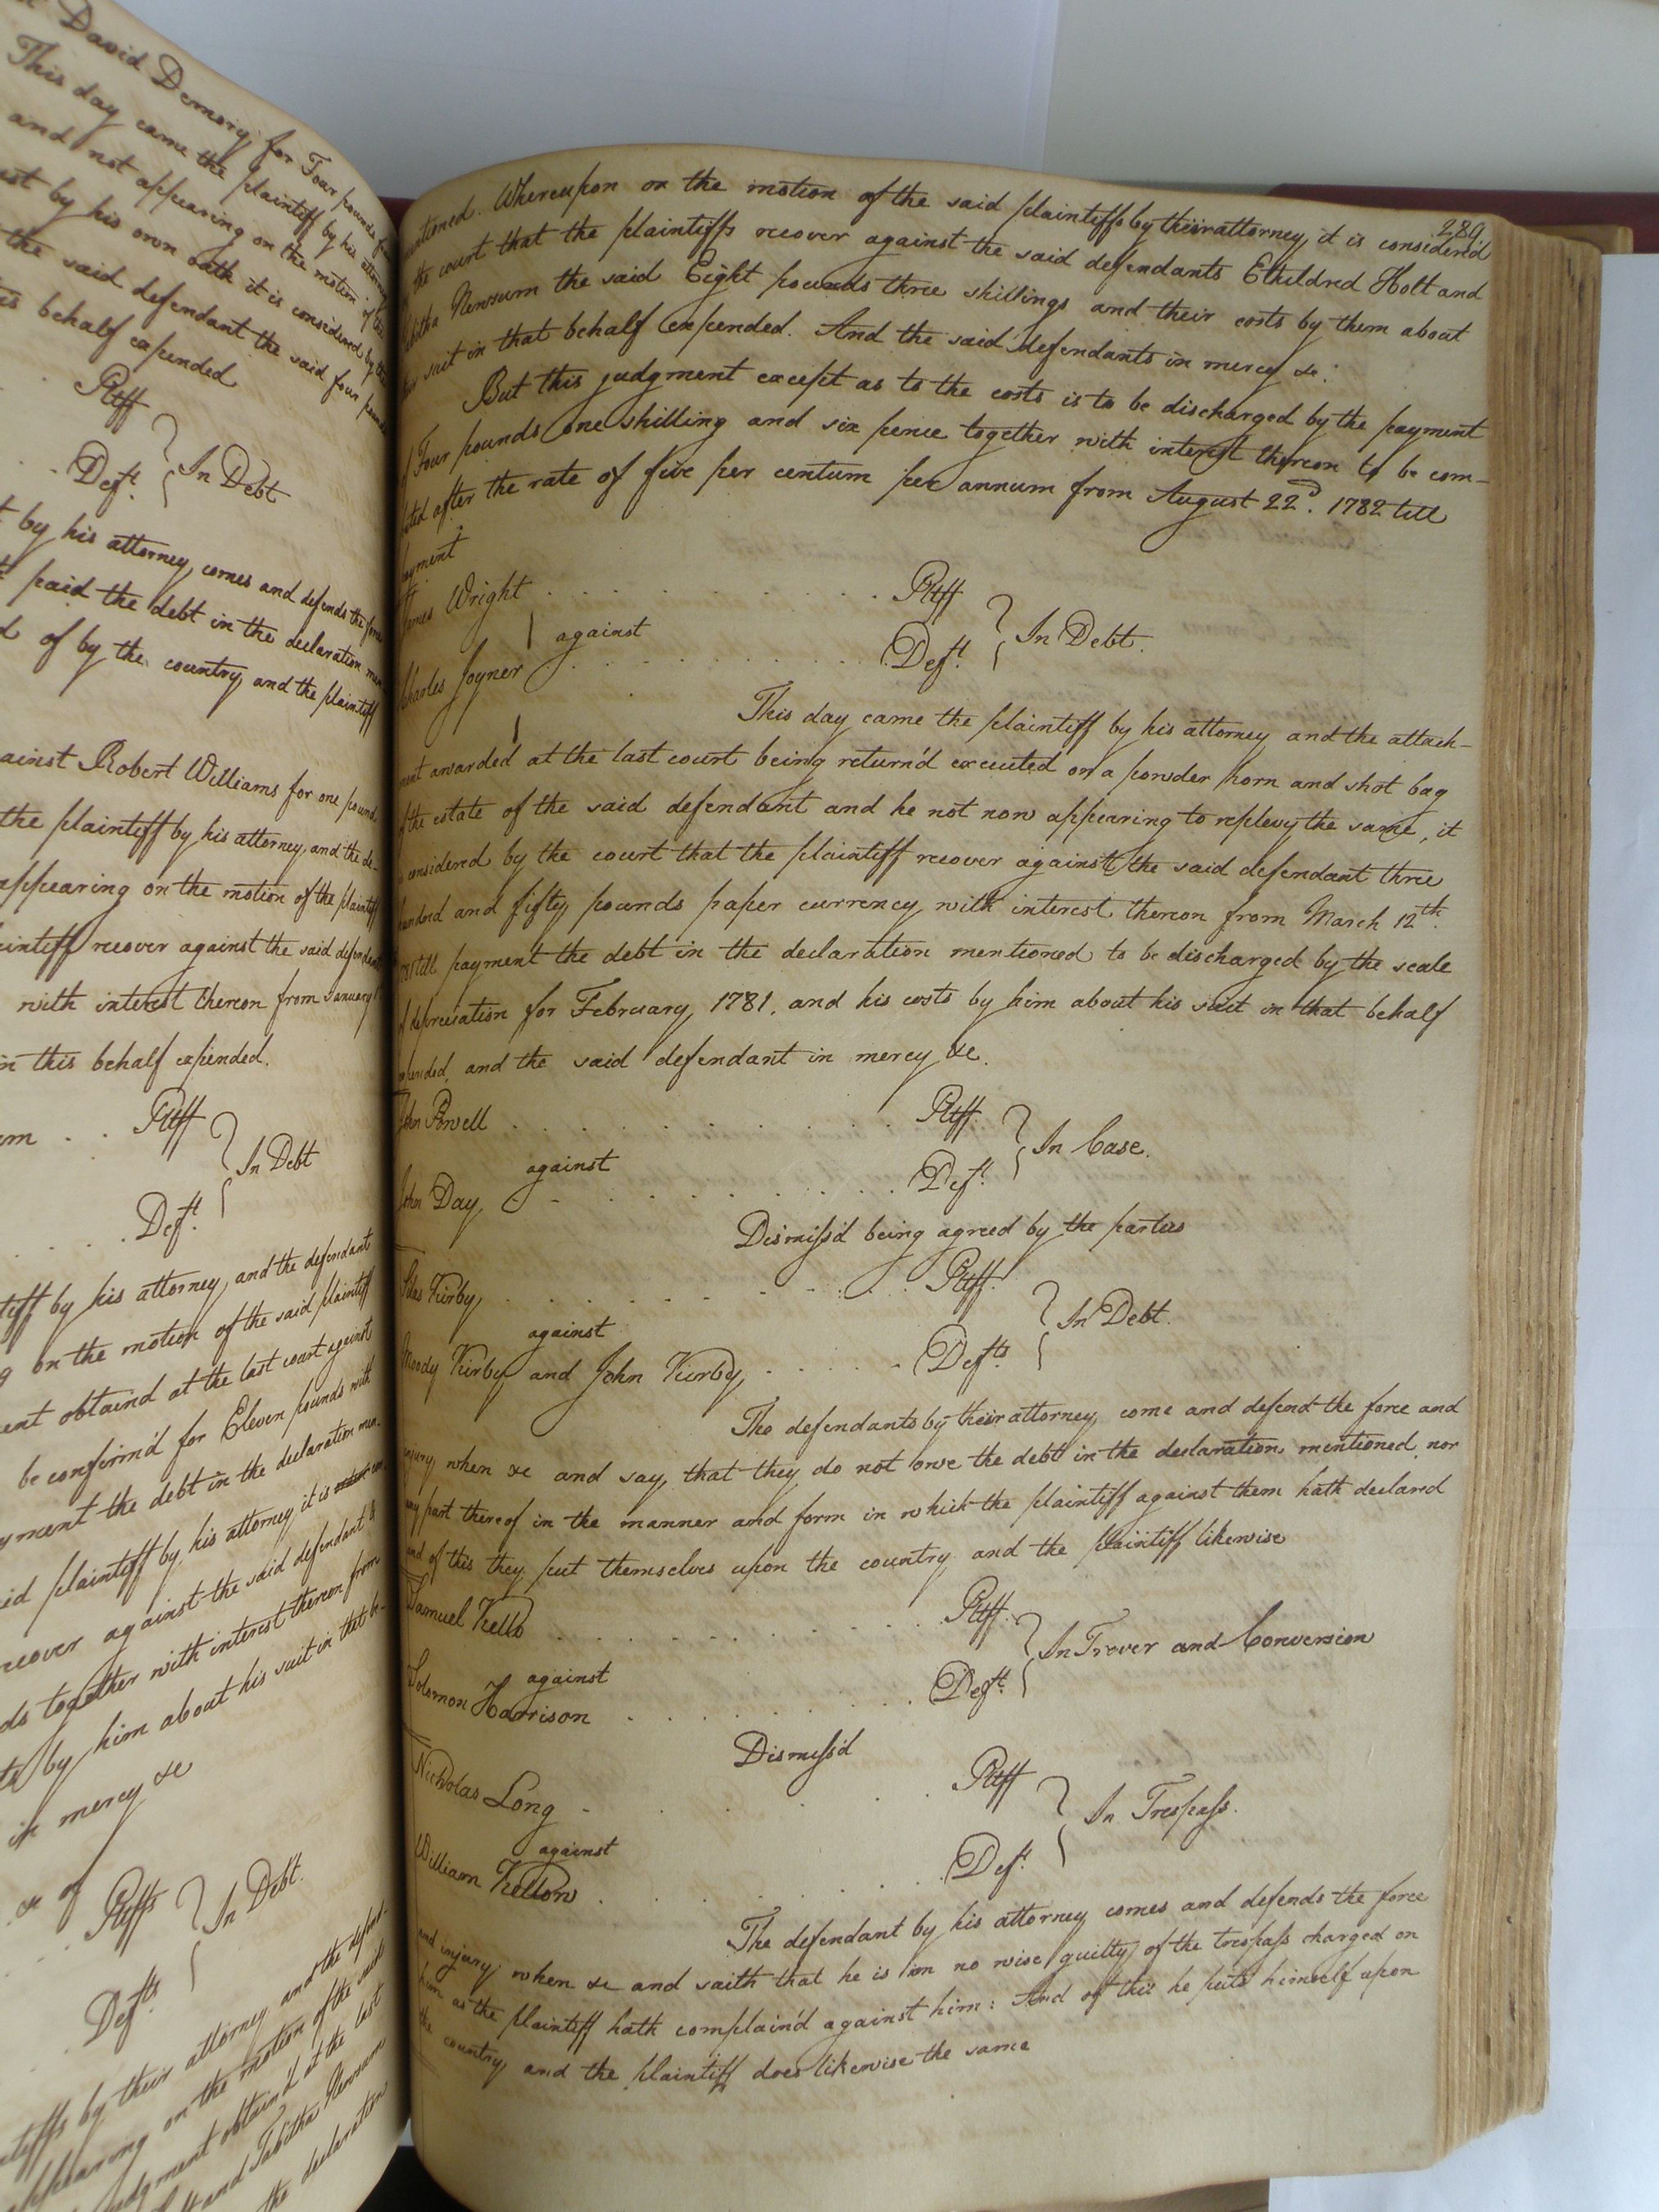 David Demory for Four pounds
This day came the plaintiff by his attorney
and not appearing on the motion of the
by his own oath it is considered by the
the said defendant the said four pounds
behalf expended
Pltff
In Debt
Deft.
by his attorney, comes and defends the force
paid the debt in the declaration
of by the country and the plaintiff
Robert Williams for one pound
the plaintiff by his attorney, and the de-
appearing on the motion of the plaintiff
recover against the said defendant
with interest thereon from January
this behalf expended.
Pltff
In Debt
Deft.
by his attorney, and the defendant
on the motion of the said plaintiff
obtaind at the last court against
be confirm'd for Eleven pounds with
the debt in the declaration men-
plaintiff by his attorney, it is
recover against the said defendant
together with interest thereon from
by him about his suit in that be-
in mercy &c
Pltffs
In Debt.
Defts.
by their attorney and the defend-
appearing on the motion of the said
judgment obtain'd at the last
and Tabitha Newsum
the declaration
289
mentioned. Whereupon on the motion of the said plaintiffs by their attorney, it is considered
the court that the plaintiffs recover against the said defendants Etheldred Holt and
Tabitha Newsum the said Eight pounds three shillings and their costs by them about
suit in that behalf expended. And the said defendants in mercy &c.
But this judgment except as to the costs is to be discharged by the payment
of Four pounds one shilling and six pence together with interest thereon to be com-
puted after the rate of five per centum per annum from August 22d. 1782 till
payment
James Wright . . . . . . . . Pltff
against
In Debt.
Charles Joyner . . . . . . . . Deft.
This day came the plaintiff by his attorney and the attach-
ment awarded at the last court being return'd executed on a powder horn and shot bag
of the estate of the said defendant and he not now appearing to replevy the same, it
is considered by the court that the plaintiff recover against the said defendant three
hundred and fifty pounds paper currency, with interest thereon from March 12th.
till payment the debt in the declaration mentioned to be discharged by the scale
of depreciation for February, 1781, and his costs by him about his suit in that behalf
expended, and the said defendant in mercy &c.
John Powell . . . . . . . . Pltff.
against
In Case.
John Day, . . . . . . . . Deft.
Dismiss'd being agreed by the parties
Silas Kirby, . . . . . . . . Pltff.
against
In Debt.
Moody Kirby and John Kirby, . . . . . Defts.
The defendants by their attorney, come and defend the force and
injury, when &c and say, that they do not owe the debt in the declaration mentioned nor
any part thereof in the manner and form in which the plaintiff against them hath declared
and of this they put themselves upon the country, and the plaintiff likewise
Samuel Kello . . . . . . . . Pltff.
against
In Trover and Conversion
Solomon Harrison . . . . . . . Deft.
Dismiss'd
Nicholas Long . . . . . Pltff
against
In Trespass.
William Kellow . . . . . . . Deft.
The defendant by his attorney, comes and defends the force
and injury, when &c and saith that he is in no wise guilty of the trespass charged on
him as the plaintiff hath complain'd against him: And of this he puts himself upon
the country, and the plaintiff does likewise the same